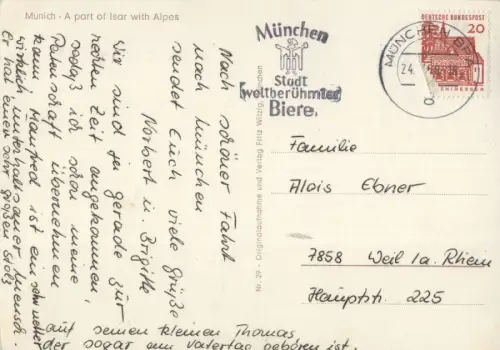 Munich - A part of Isar with Alpes
Nach schöner Fahrt
nach München
sendet Euch viele Grüße
Norbert u. Brigitte
Wir sind zu gerade zur
rechten Zeit angekommen,
sodaß ich schon meine
Patenschaft übernehmen
kann. Manfred ist ein sehr netter
wirklich unterhaltsamer Mensch.
Er hat einen sehr großen Stolz
auf seinen kleinen Thomas
der sogar am Vatertag geboren ist.
Nr. 29 - Originalaufnahme und Verlag Fritz Witzig, München
München
Stadt
weltberühmter
Biere
MÜNCHEN
24.
a
DEUTSCHE BUNDESPOST
20
Familie
Alois Ebner
7858 Weil / a. Rhein
Hauptstr. 225